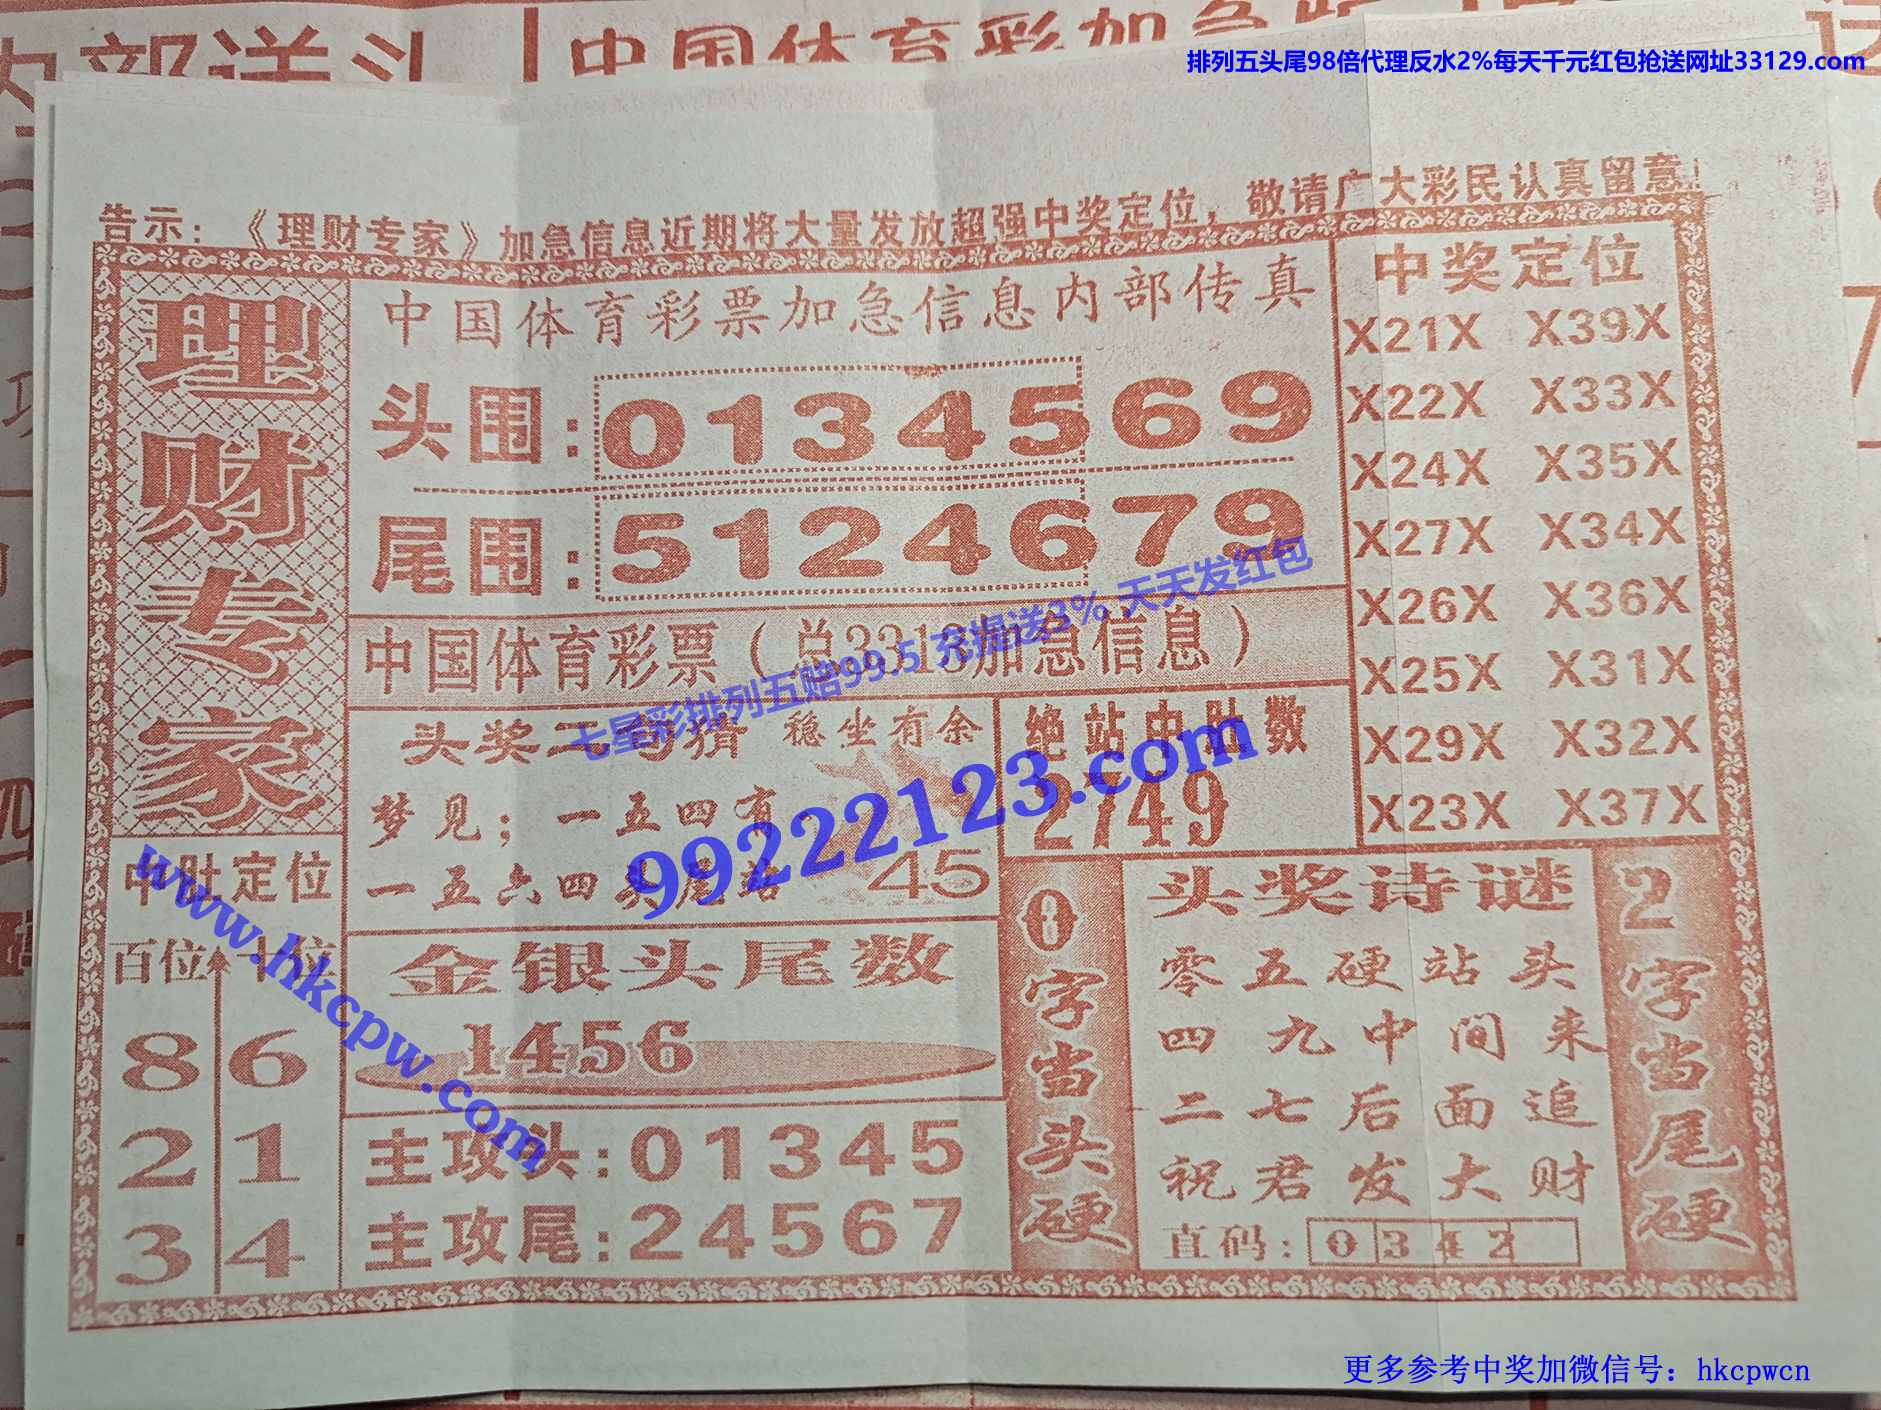 内部送头
中国体育彩加急
排列五头尾98倍代理反水2%每天千元红包抢送网址33129.com
告示：《理财专家》加急信息近期将大量发放超强中奖定位，敬请广大彩民认真留意！
理财专家
中国体育彩票加急信息内部传真
头围：0134569
尾围：5124679
中国体育彩票（总3313加急信息）
七星彩排列五赔99.5 充提送3% 天天发红包
中奖定位
X21X X39X
X22X X33X
X24X X35X
X27X X34X
X26X X36X
X25X X31X
X29X X32X
X23X X37X
头奖 稳坐有余
梦见；一五四有
一五六四头尾站 45
绝站中肚数
2749
99222123.com
www.hkcpw.com
中肚定位
百位 十位
8 6
2 1
3 4
金银头尾数
1456
主攻头：01345
主攻尾：24567
0字当头硬
头奖诗谜
零五硬站头
四九中间来
二七后面追
祝君发大财
直码：0342
2字当尾硬
更多参考中奖加微信号：hkcpwcn